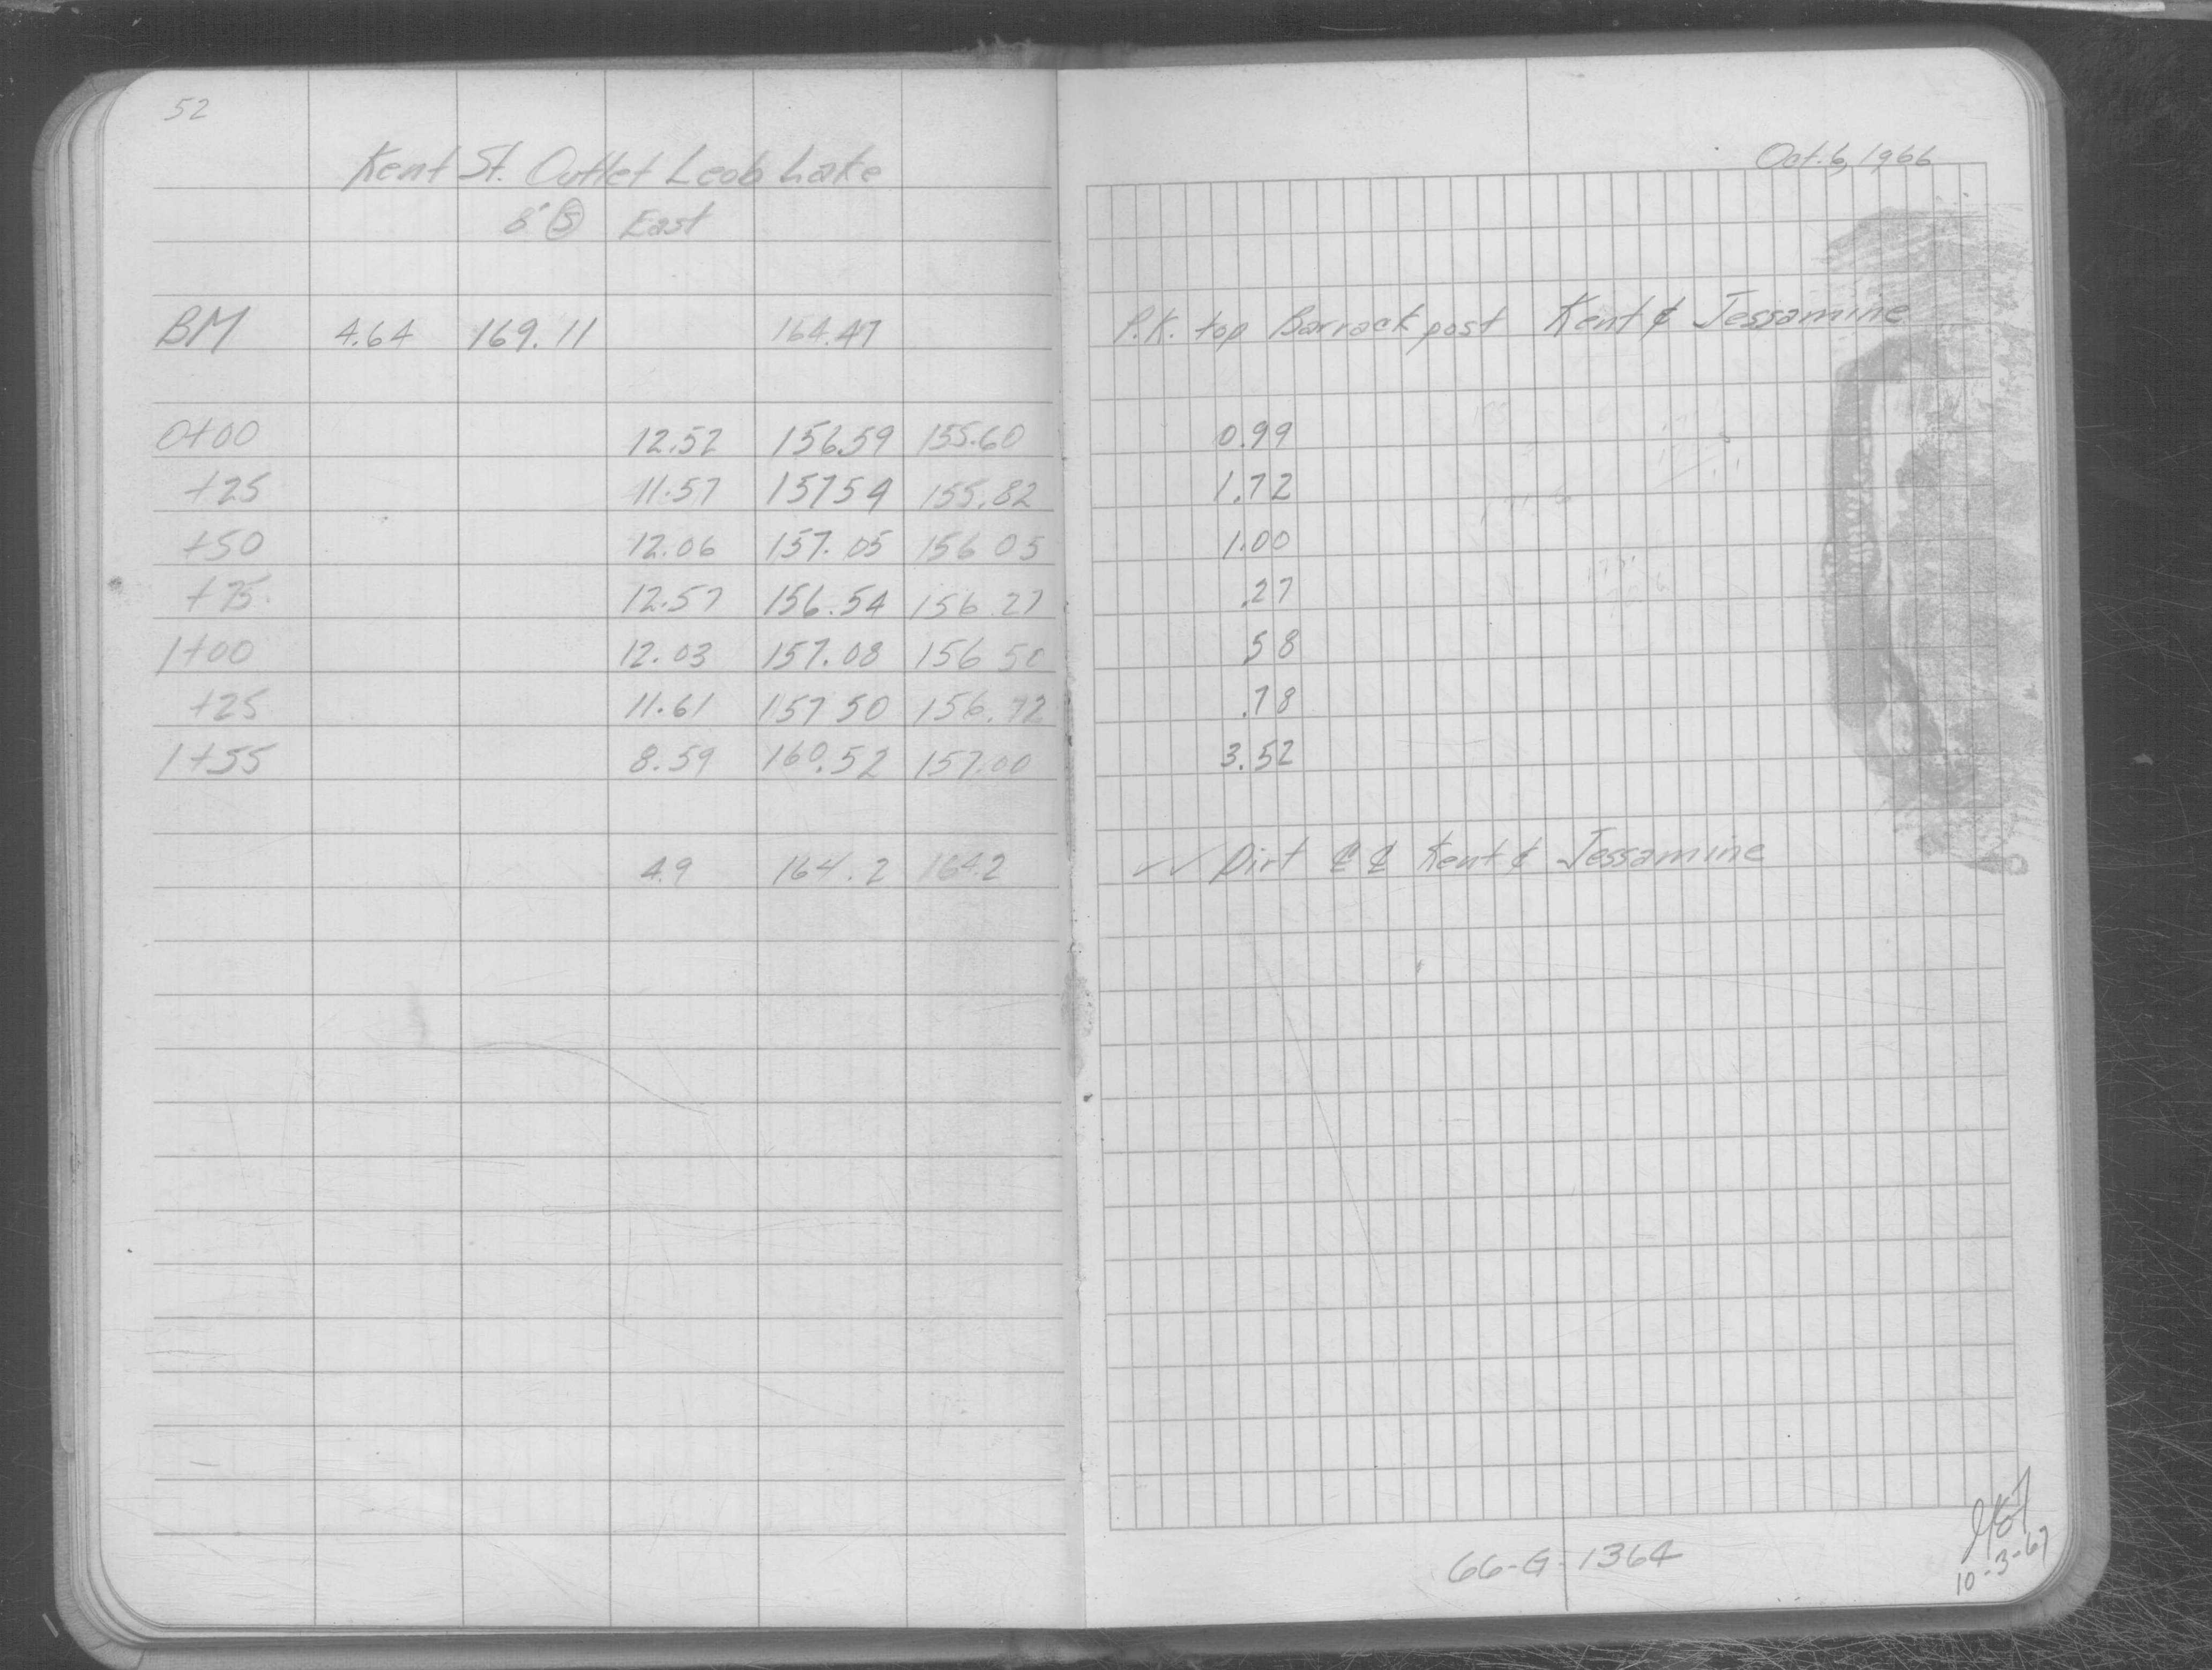 52
Kent St. Outlet Leob Lake
8' Ⓢ East
BM 4.64 169.11 164.47
0+00 12.52 156.59 155.60
+25 11.57 157 54 155.82
+50 12.06 157.05 156 05
+75 12.57 156.54 156 27
1+00 12.03 157.08 156 50
+25 11.61 157 50 156.72
1+55 8.59 160.52 157.00
4.9 164.2 164.2
Oct. 6, 1966
P.K. top Barrack post Kent & Jessamine
0.99
1.72
1.00
.27
.58
.78
3.52
✓✓ Dirt ℄ ℄ Kent & Jessamine
66-G-1364
10-3-67